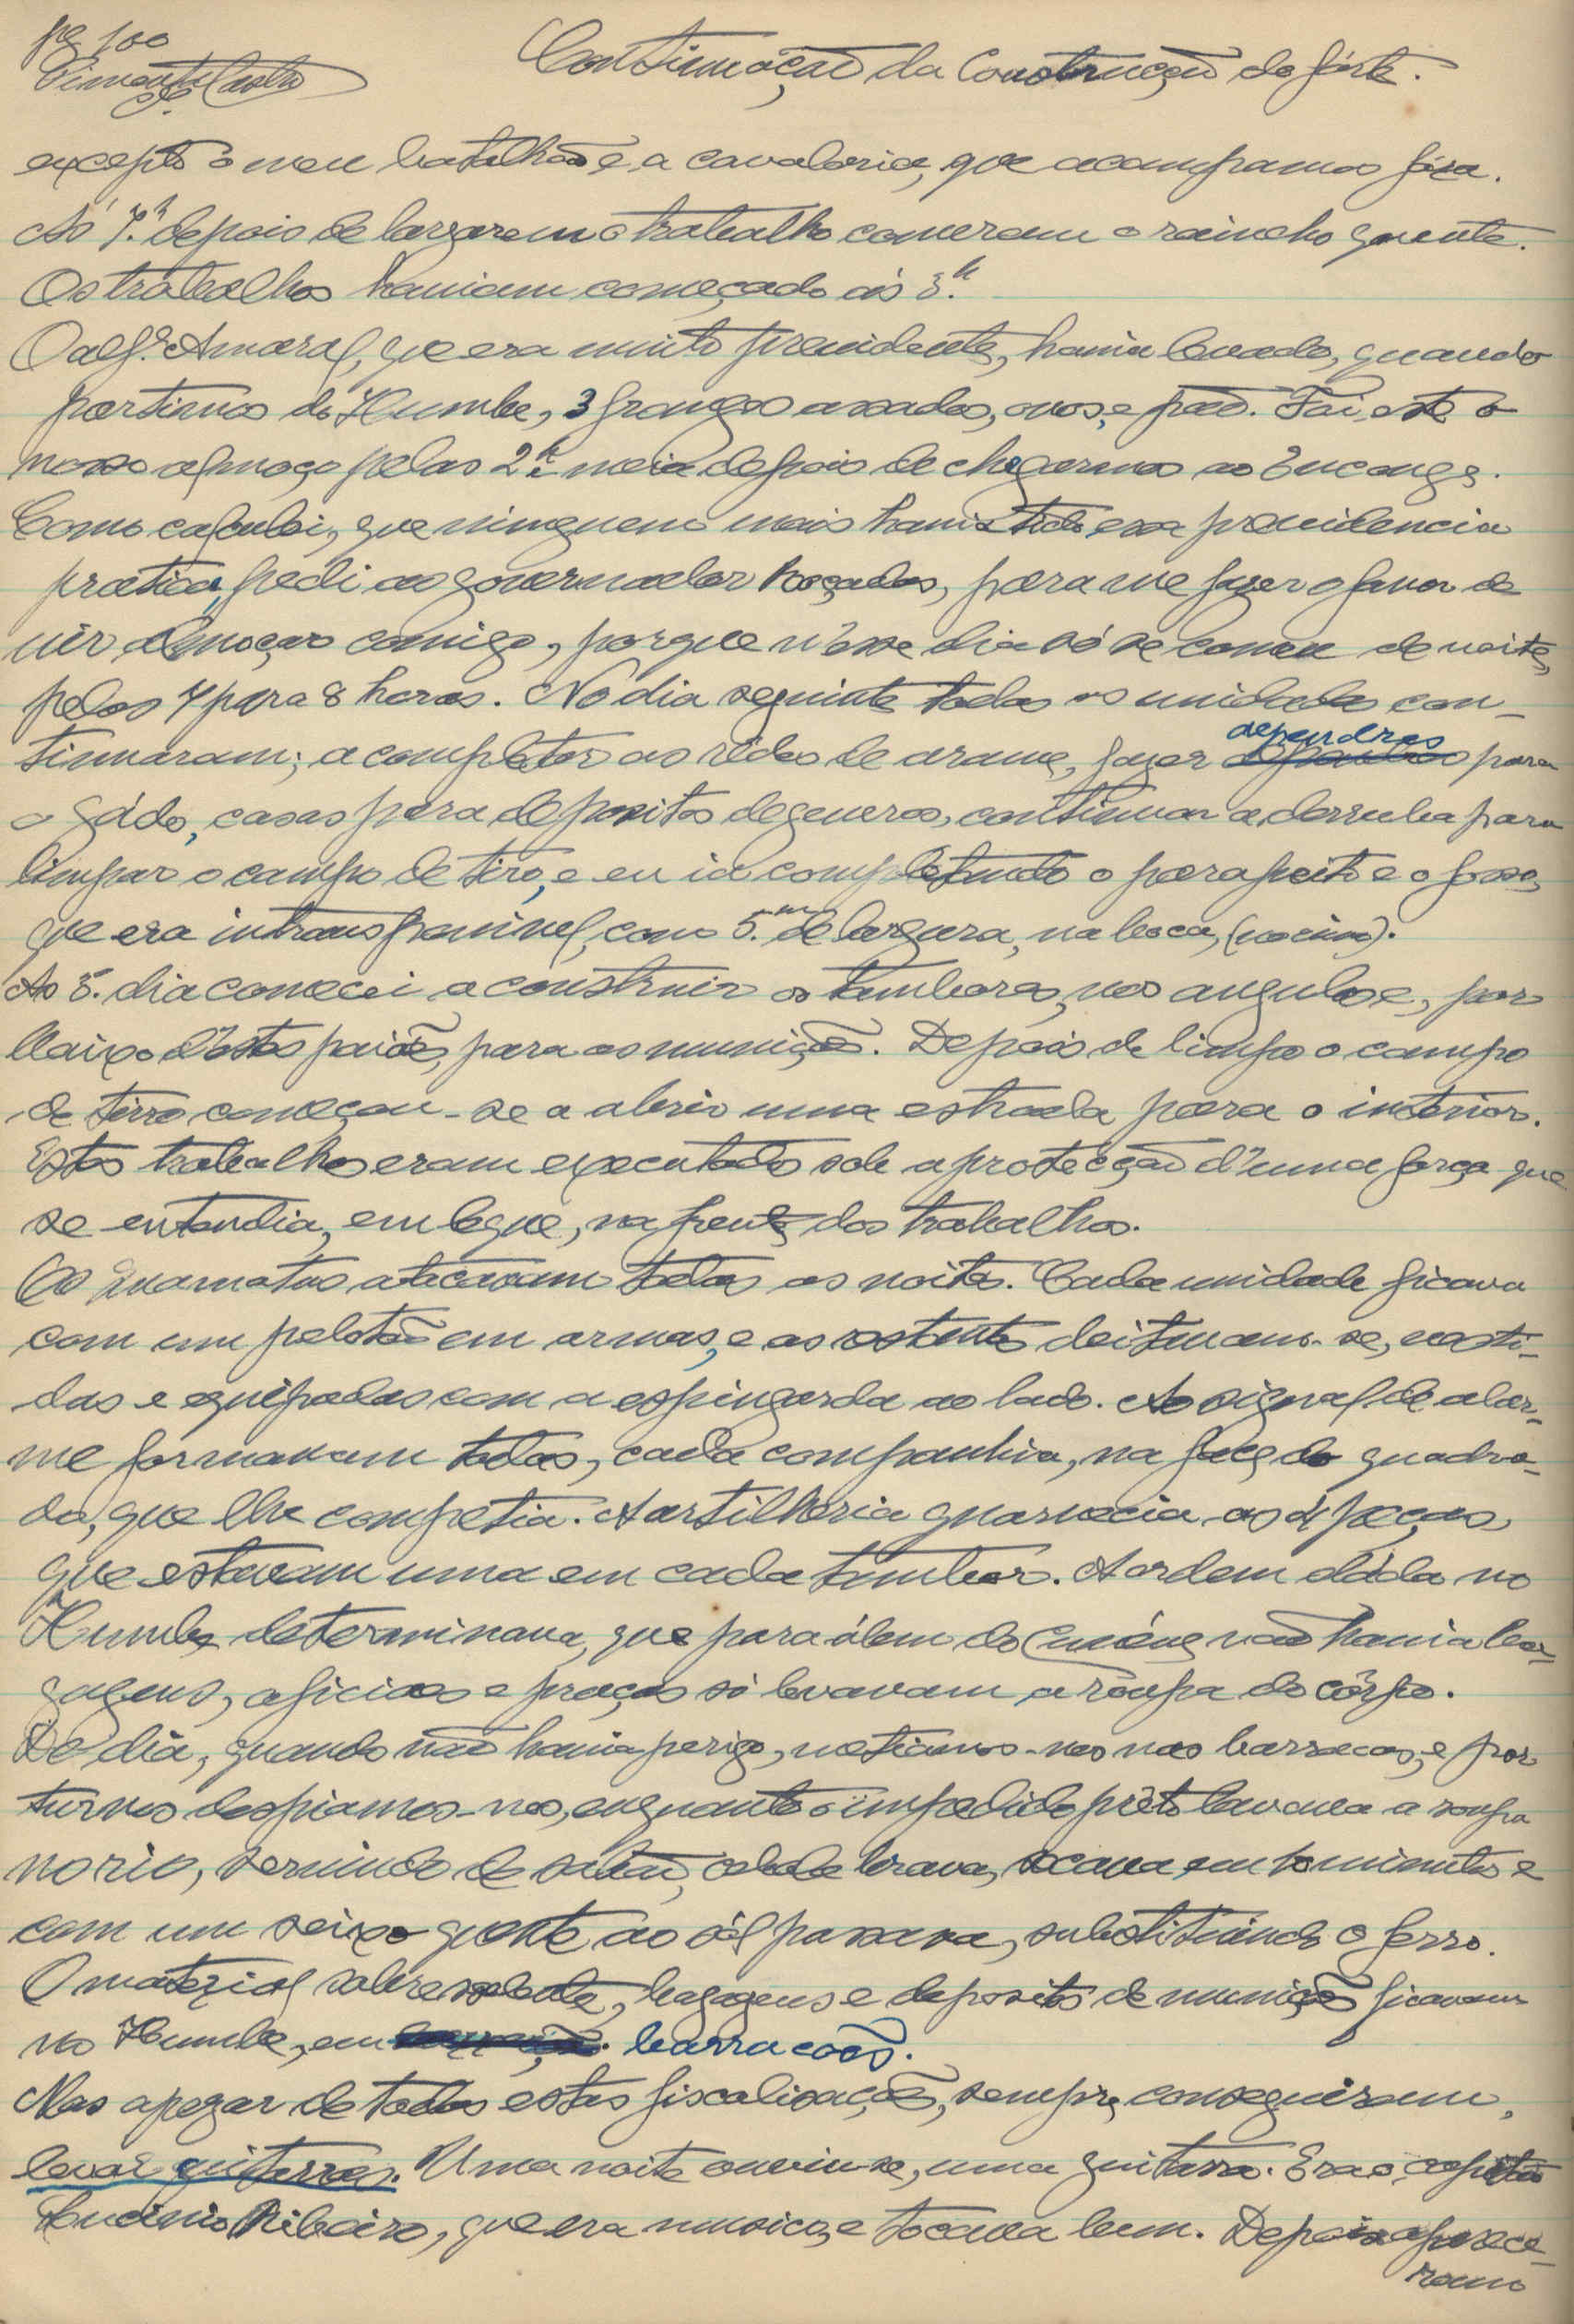 pg 100
Continuação da Construção do fórte.
Pimenta de Castro
excepto o meu batalhão e a cavalaria, que acampamos fóra.
Ás 7.h depois de largarem o trabalho comeram o rancho quente.
Os trabalhos haviam começado ás 3.h
O alf.e Amaral, que era muito previdente, havia levado, quando
partimos do Humbe, 3 frangos assados, ovos, e pão. Foi este o
nosso almoço pelas 2.h meia depois de chegarmos ao Encongo.
Como calculei, que ninguem mais havia tido essa previdencia
pratica, pedi ao governador Roçadas, para me fazer o favor de
vir almoçar comigo, porque n'esse dia só se comeu de noite,
pelas 7 para 8 horas. No dia seguinte todas as unidades con-
tinuaram; a completar as rêdes de arame, fazer dependres para
o gádo, casas para depositos de generos, continuar a derruba para
limpar o campo de tiro, e eu ia completando o parapeito e o fosso,
que era intransponivel, com 5.m de largura, na boca, (no cimo).
Ao 3.º dia comecei a construir os tambores, nos angulos e, por
baixo d'estes paióes, para as munições. Depois de limpo o campo
de tirro começou-se a abrir uma estrada para o interior.
Estes trabalhos eram executados sob a protecção d'uma força que
se entendia, em leque, na frente dos trabalhos.
Os Cuamatos atacavam todas as noites. Cada unidade ficava
com um pelotão em armas, e as restantes deitavam-se, vesti-
das e equipadas com a espingarda ao lado. Ao signal de alar-
me formavam todas, cada companhia, na face do quadra-
do, que lhe competia. A artilharia guarnecia as 4 peças,
que estavam uma em cada tambor. A ordem dáda no
Humbe determinava, que para álem do Cunéne não havia ba-
gagens, oficiaes e praças só levavam a roupa do côrpo.
De dia, quando não havia perigo, metiamos-nos nas barracas, e por
turnos despiamos-nos, enquanto o impedido prêto lavava a roupa
no rio, servindo de sabão, cebola brava, secava em 10 minutos e
com um seixo quente ao sól passava, substituindo o ferro.
O material sobresalente, bagagens e deposito de munições ficavam
no Humbe, em barracões.
Mas apezar de todas estas fiscalisações, sempre conseguiram,
levar guitarras. Uma noite ouviu-se, uma guitarra. Era o capitão
Ribeiro, que era musico, e tocava bem. Depois aparece-
ram